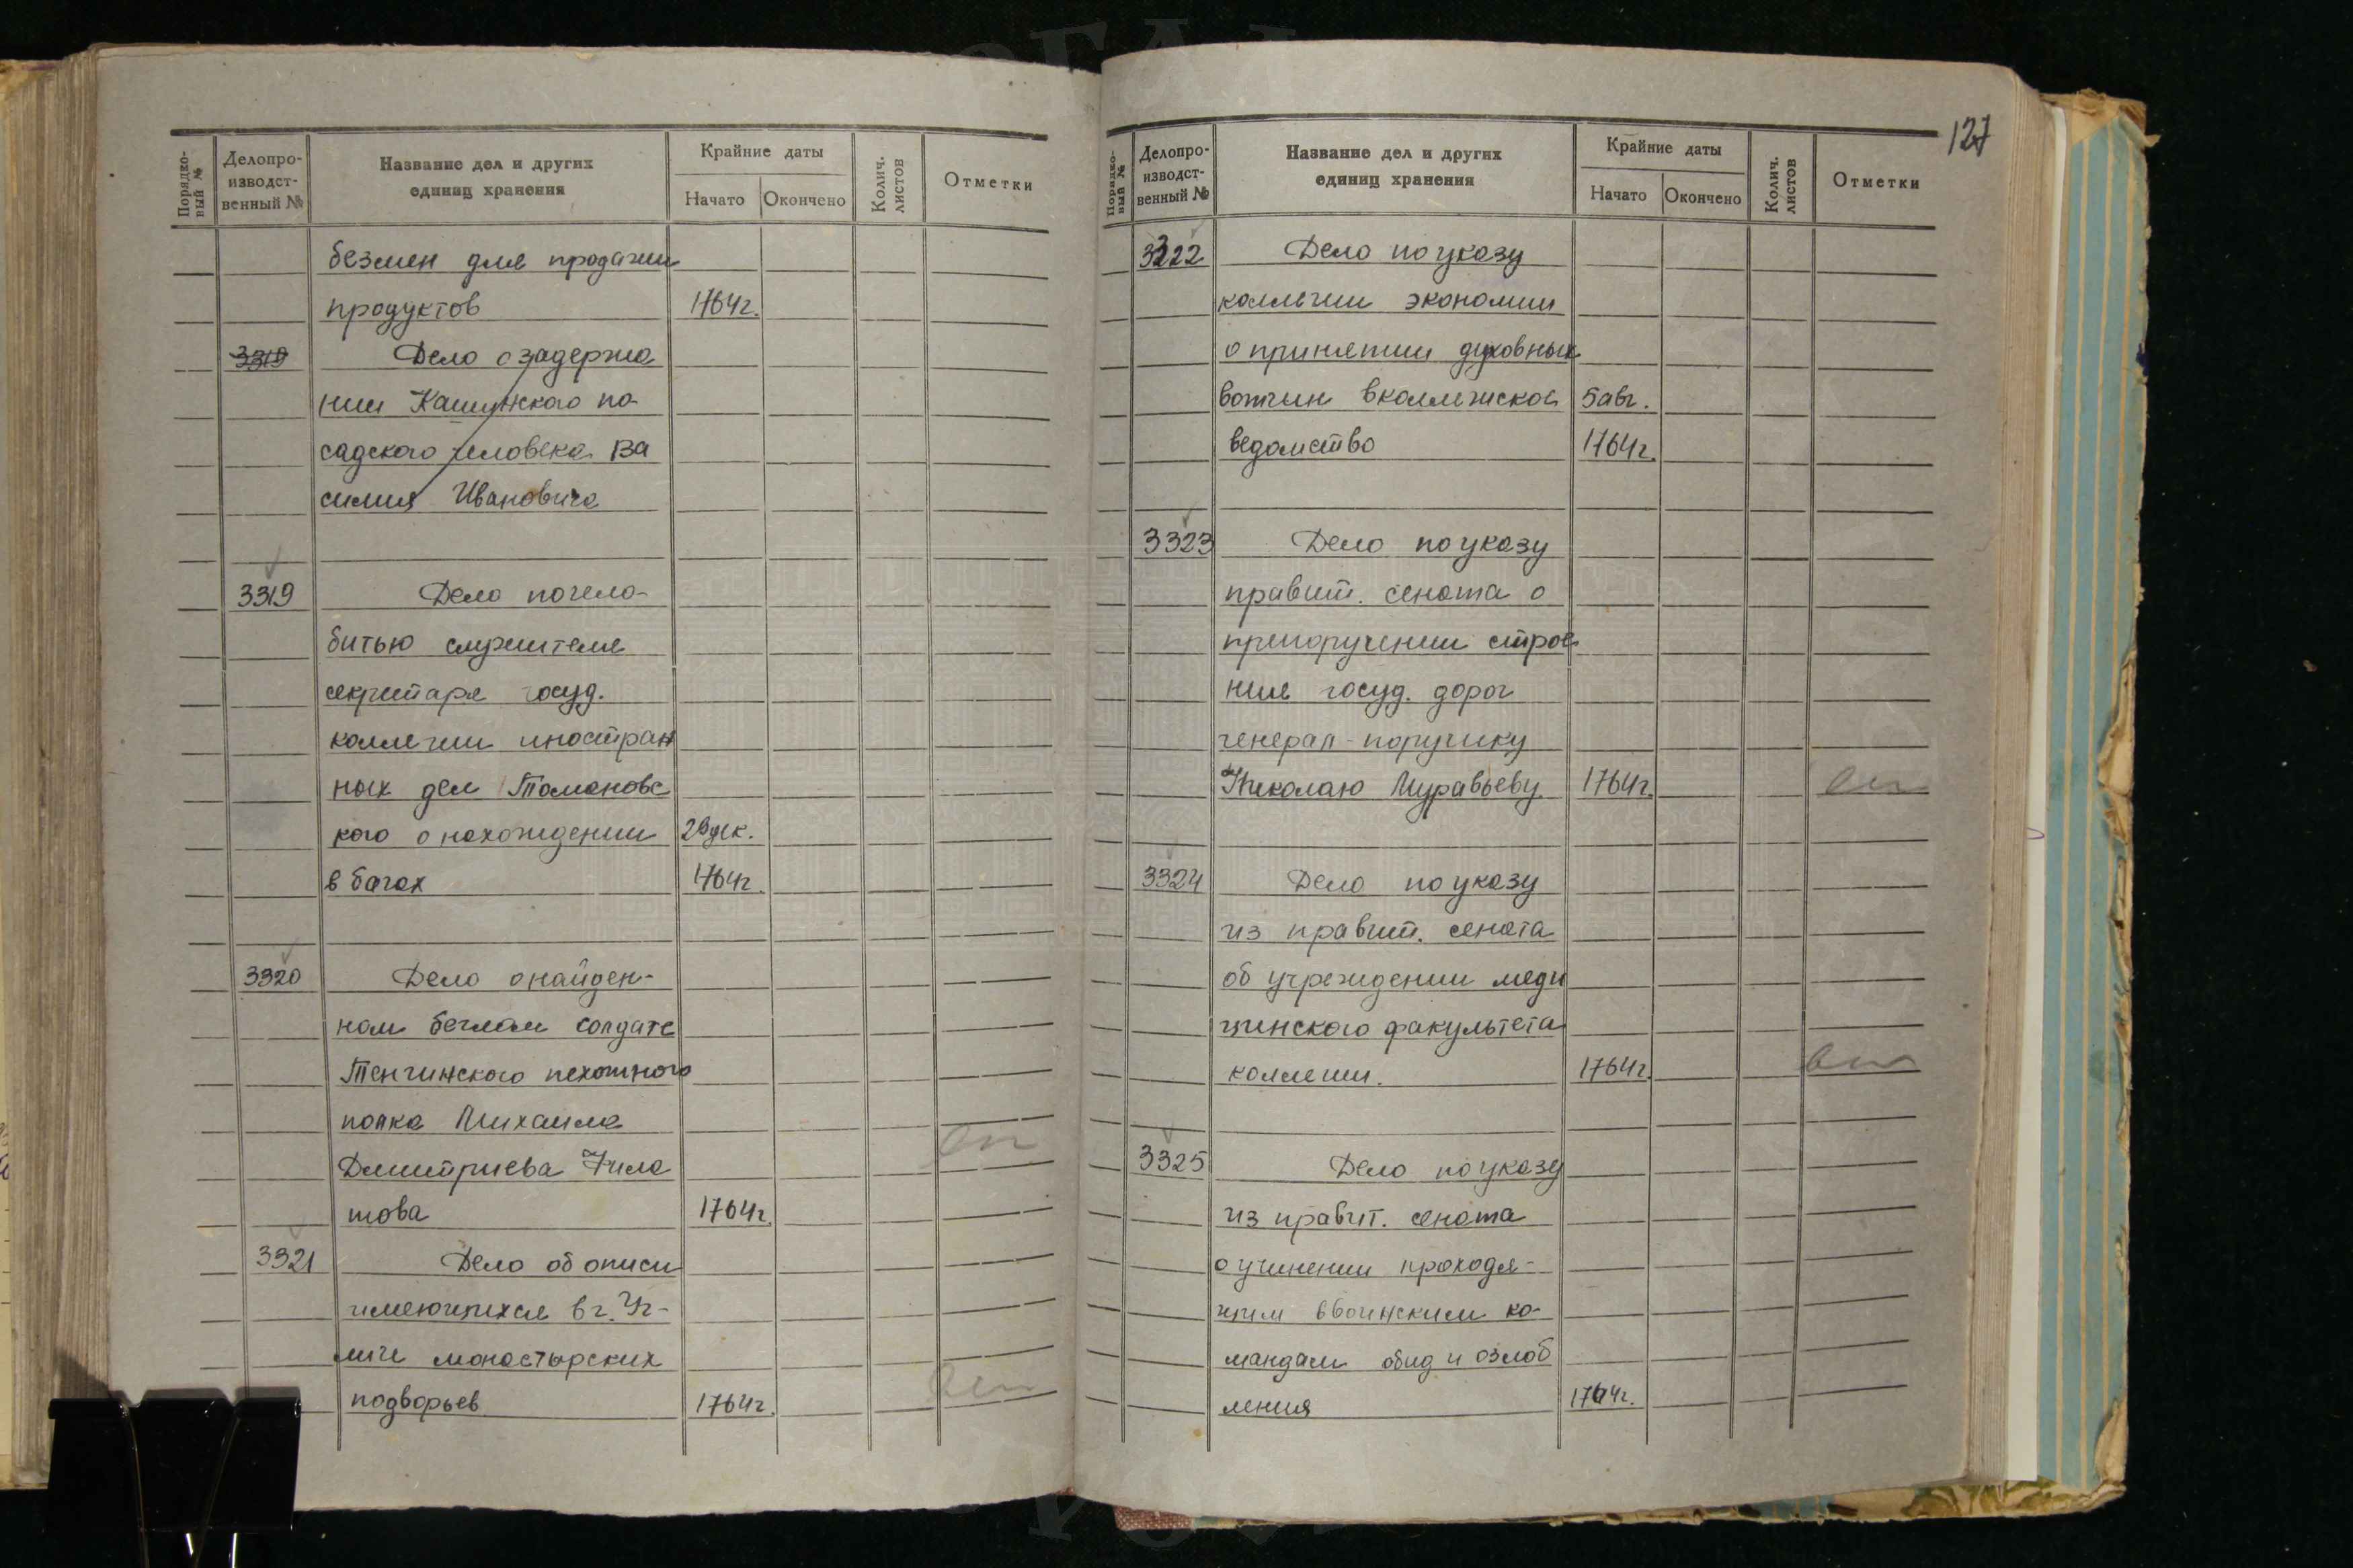 Порядко-
вый №
Делопро-
изводст-
венный №
Название дел и других
единиц хранения
Крайние даты
Начато
Окончено
Колич.
листов
Отметки
безмен для продажи
продуктов 1764г.
3319 Дело о задержа
нии Кашинского по-
садского человека Ва
силия Ивановича
3319 Дело по чело-
битью служителя
секретаря госуд.
коллегии иностран
ных дел Томановс
кого о нахождении 29 дек.
в бегах 1764г.
3320 Дело о найден-
ном беглом солдате
Тенгинского пехотного
полка Михаиле
Дмитриева Фила
това 1764г.
3321 Дело об описи
имеющихся в г. Уг-
личе монастырских
подворьев 1764г.
127
Порядко-
вый №
Делопро-
изводст-
венный №
Название дел и других
единиц хранения
Крайние даты
Начато
Окончено
Колич.
листов
Отметки
3322 Дело по указу
коллегии экономии
о принятии духовных
вотчин в коллежское 5 авг.
ведомство 1764г.
3323 Дело по указу
правит. сената о
препоручении строе
ния госуд. дорог
генерал-поручику
Николаю Муравьеву 1764г.
3324 Дело по указу
из правит. сената
об учреждении меди
цинского факультета
коллегии. 1764г.
3325 Дело по указу
из правит. сената
о учинении проходя-
щим в воинским ко-
мандам обид и озлоб
ления 1764г.